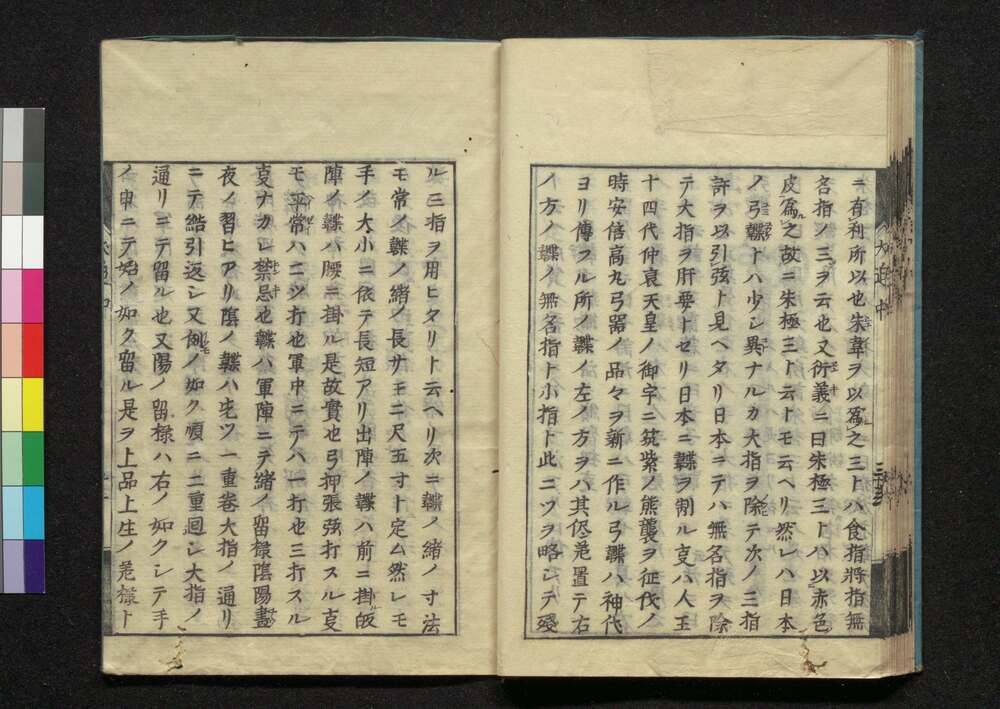 ニ有利所以也朱韋ヲ以爲之三トハ食指將指無
名指ノ三ヲ云也又衍義ニ曰朱極三トハ以赤色
皮爲之故ニ朱極三ト云トモ云ヘリ然レハ日本
ノ弓韘トハ少シ異ナルカ大指ヲ除テ次ノ三指
許ヲ以引弦ト見ヘタリ日本ニテハ無名指ヲ除
テ大指ヲ肝要トセリ日本ニ韘ヲ制ル叓ハ人王
十四代仲哀天皇ノ御宇ニ筑紫ノ熊襲ヲ征伐ノ
時安倍高丸弓器ノ品々ヲ新ニ作ル弓韘ハ神代
ヨリ傳フル所ノ韘ノ左ノ方ヲハ其侭差置テ右
ノ方ノ韘ノ無名指ト小指ト此二ツヲ略シテ殘
ル三指ヲ用ヒタリト云ヘリ次ニ韘ノ緒ノ寸法
モ常ノ韘ノ緒ノ長サ三二尺五寸ト定ム然レモ
手ノ大小ニ依テ長短アリ出陣ノ韘ハ前ニ掛皈
陣ノ韘ハ腰ニ掛ル是故實也弓押張強打スル叓
モ平常ハ二ツ打也軍中ニテハ一打也三打スル
叓ナカレ禁忌也韘ハ軍陣ニテ緒ノ留様陰陽晝
夜ノ習ヒアリ陰ノ韘ハ先ツ一重巻大指ノ通リ
ニテ結引返シ又例ノ如ク順ニ二重廻シ大指ノ
通リニテ留ル也又陽ノ留様ハ右ノ如クシテ手
ノ甲ニテ始ノ如ク留ル是ヲ上品上生ノ差様ト